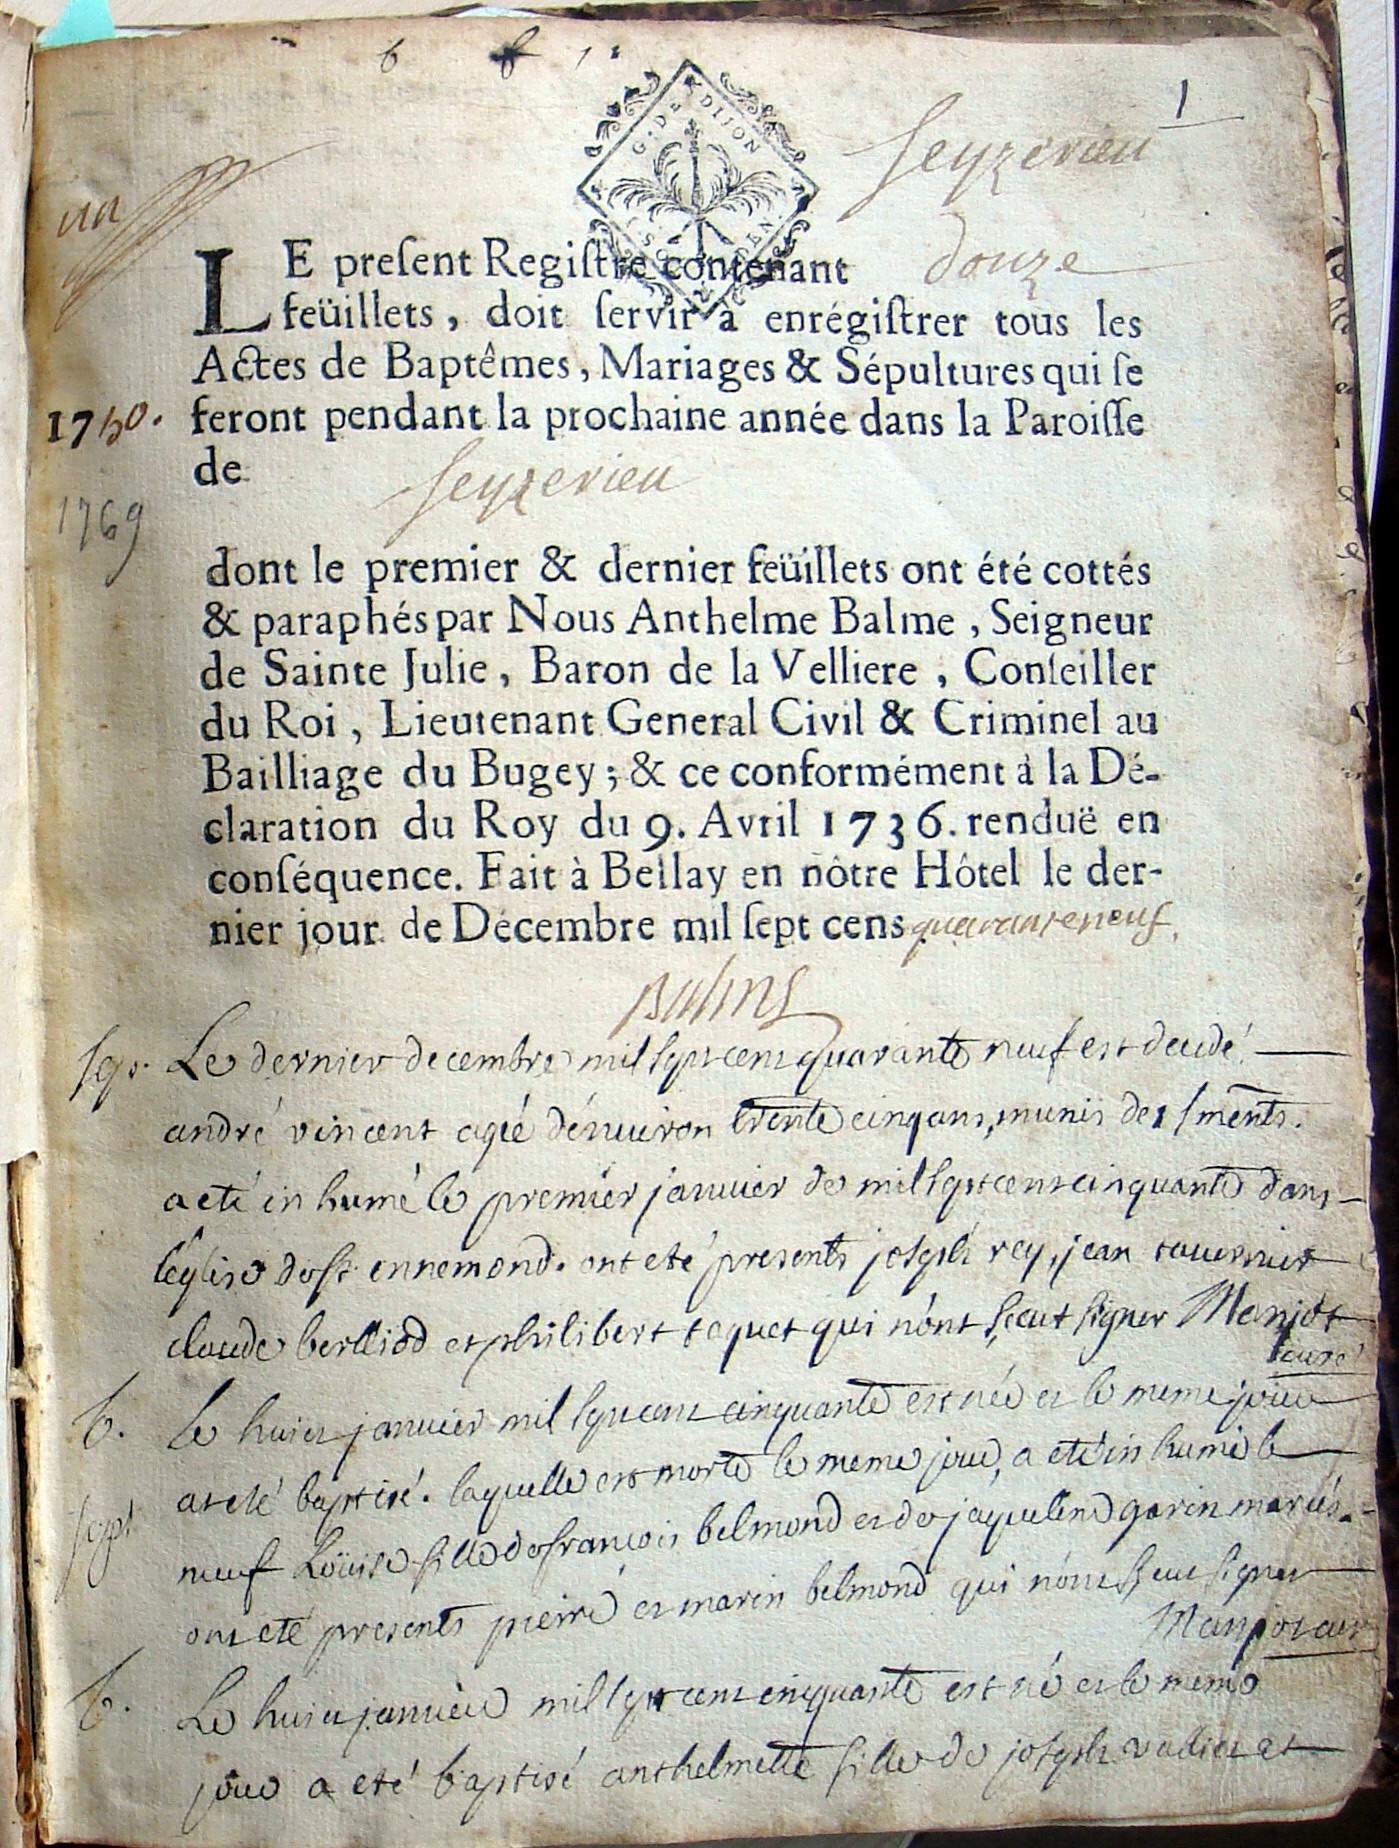 b
1
G. DE DIJON
Seyzerieu
un
LE preſent Regiſtre contenant douze
feüillets, doit ſervir à enrégiſtrer tous les
Actes de Baptêmes, Mariages & Sépultures qui ſe
1750. feront pendant la prochaine année dans la Paroiſſe
de Seyzerieu
1769
dont le premier & dernier feüillets ont été cottés
& paraphés par Nous Anthelme Balme, Seigneur
de Sainte Julie, Baron de la Velliere, Conſeiller
du Roi, Lieutenant General Civil & Criminel au
Bailliage du Bugey; & ce conformément à la Dé-
claration du Roy du 9. Avril 1736. renduë en
conſéquence. Fait à Bellay en nôtre Hôtel le der-
nier jour de Décembre mil ſept cens quaranteneuf.
Balme
Sep. Le dernier decembre mil sept cens quarante neuf est decedé
andré vincent agé dénuiron trente cinq ans, munis des sments.
a eté inhumé le premier januier de mil sept cens cinquante dans
léglise de st ennemond. ont eté presents joseph rey, jean tauernier
claude berlliod et philibert taquet qui nónt sceut signer Manjot
curé
b. Le huict januier mil sept cens cinquante est née et le meme jour
at eté baptisé. laquelle est morte le meme jour, a eté inhumé le
Sept neuf Loüise fille de francois belmond et de jaqueline garin mariés.
ont eté presents pierre et marin belmond qui nónt sceut signer
Manjot curé
b. Le huict januier mil sept cens cinquante est né et le meme
jour a eté baptisé anthelmette fille de joseph vallier et